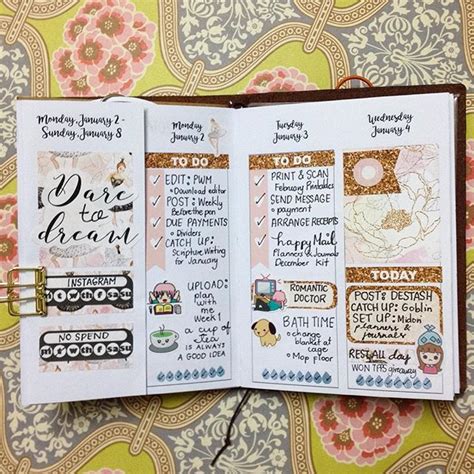 Monday, January 2 -
Sunday, January 8
Dare
to
dream
INSTAGRAM
m t w th f sa su
NO SPEND
m t w th f sa su
Monday
January 2
TO DO
EDIT: PWM
Download editor
POST: Weekly
Before the pen
DUE PAYMENTS
Dividers
CATCH UP:
Scripture Writing
for January
UPLOAD:
plan
with
me
Week 1
a cup of
tea
IS ALWAYS
A GOOD IDEA
Tuesday
January 3
TO DO
PRINT & SCAN
February Printables
SEND MESSAGE
payment
ARRANGE RECEIPTS
happy Mail
Planners & Journals
December kit
ROMANTIC
DOCTOR
BATH TIME
change
blanket
at
cage
Mop floor
Wednesday
January 4
TODAY
POST: DESTASH
CATCH UP: Goblin
SET UP: Midori
planners &
journals
REST all day
WON TPS giveaway